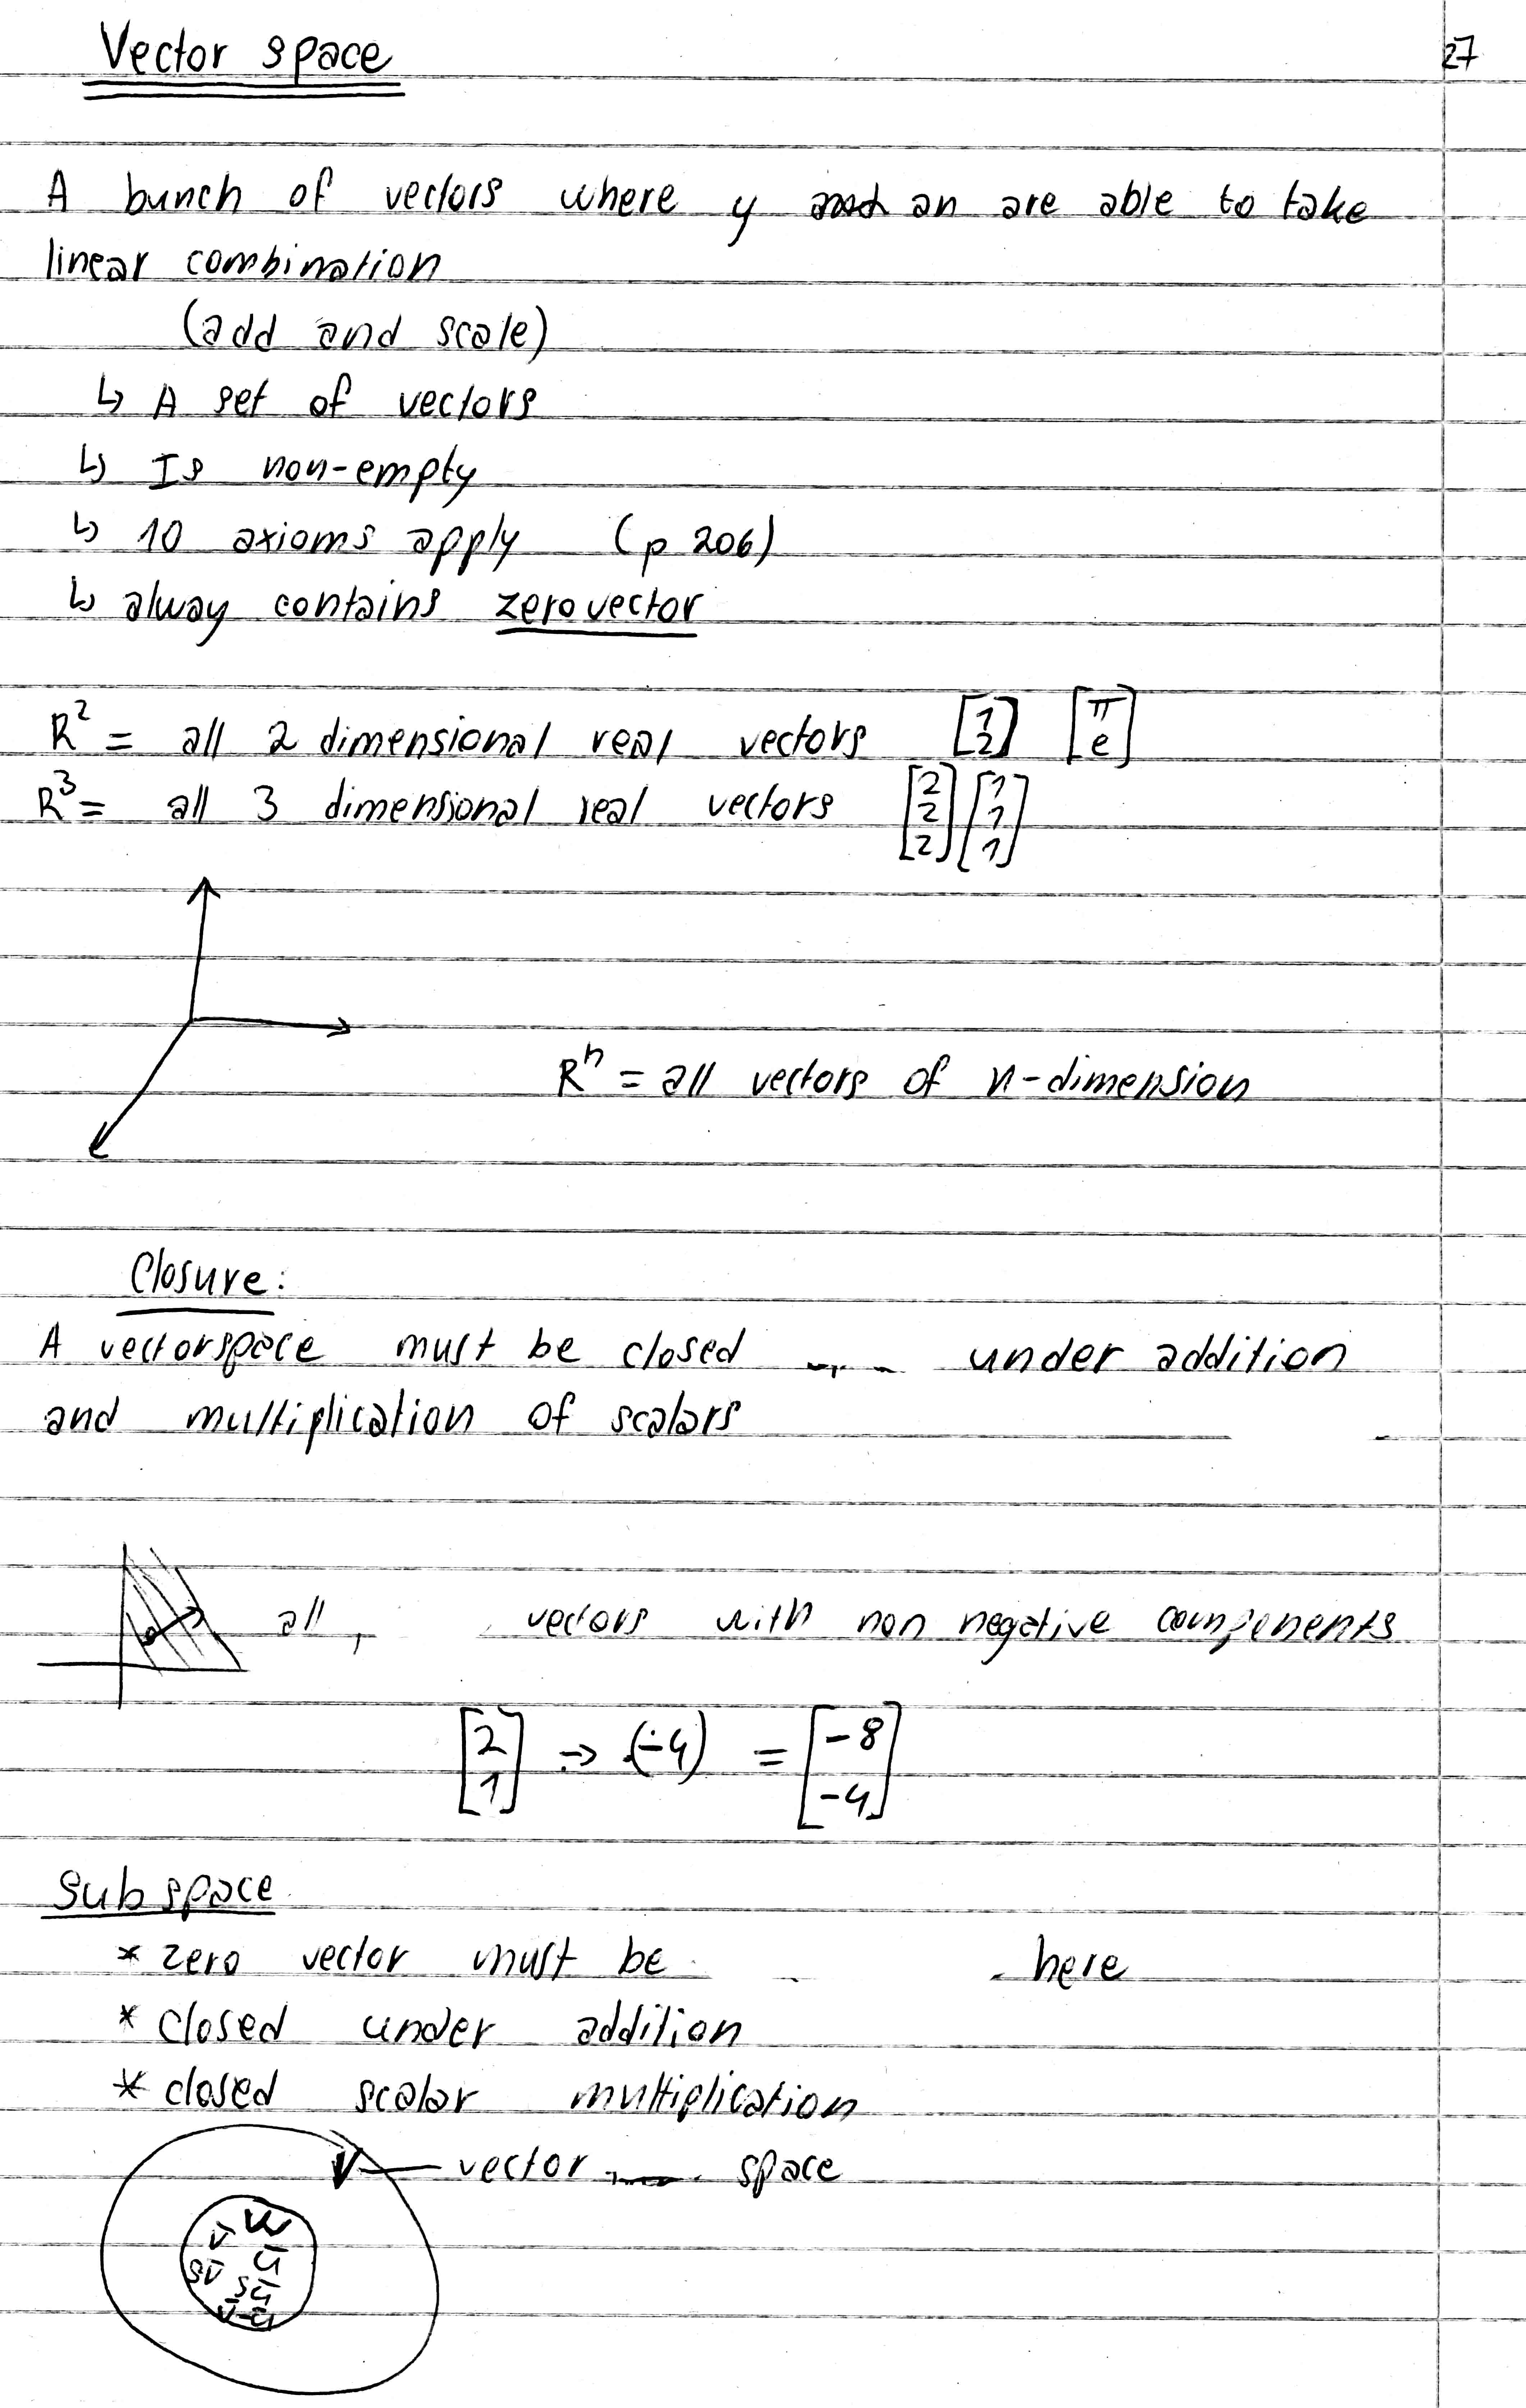 Vector space
27
A bunch of vectors where y an are able to take
linear combination
(add and scale)
↳ A set of vectors
↳ Is non-empty
↳ 10 axioms apply (p 206)
↳ alway contains zerovector
R² = all 2 dimensional real vectors [1 2] [π e]
R³ = all 3 dimensional real vectors [2 2 2] [1 1 1]
Rⁿ = all vectors of n-dimension
Closure:
A vectorspace must be closed under addition
and multiplication of scalars
all, vectors with non negative components
[2 1] → (-4) = [-8 -4]
Subspace
* zero vector must be here
* closed under addition
* closed scalar multiplication
V vector space
W
v̄
ū
sv̄
sū